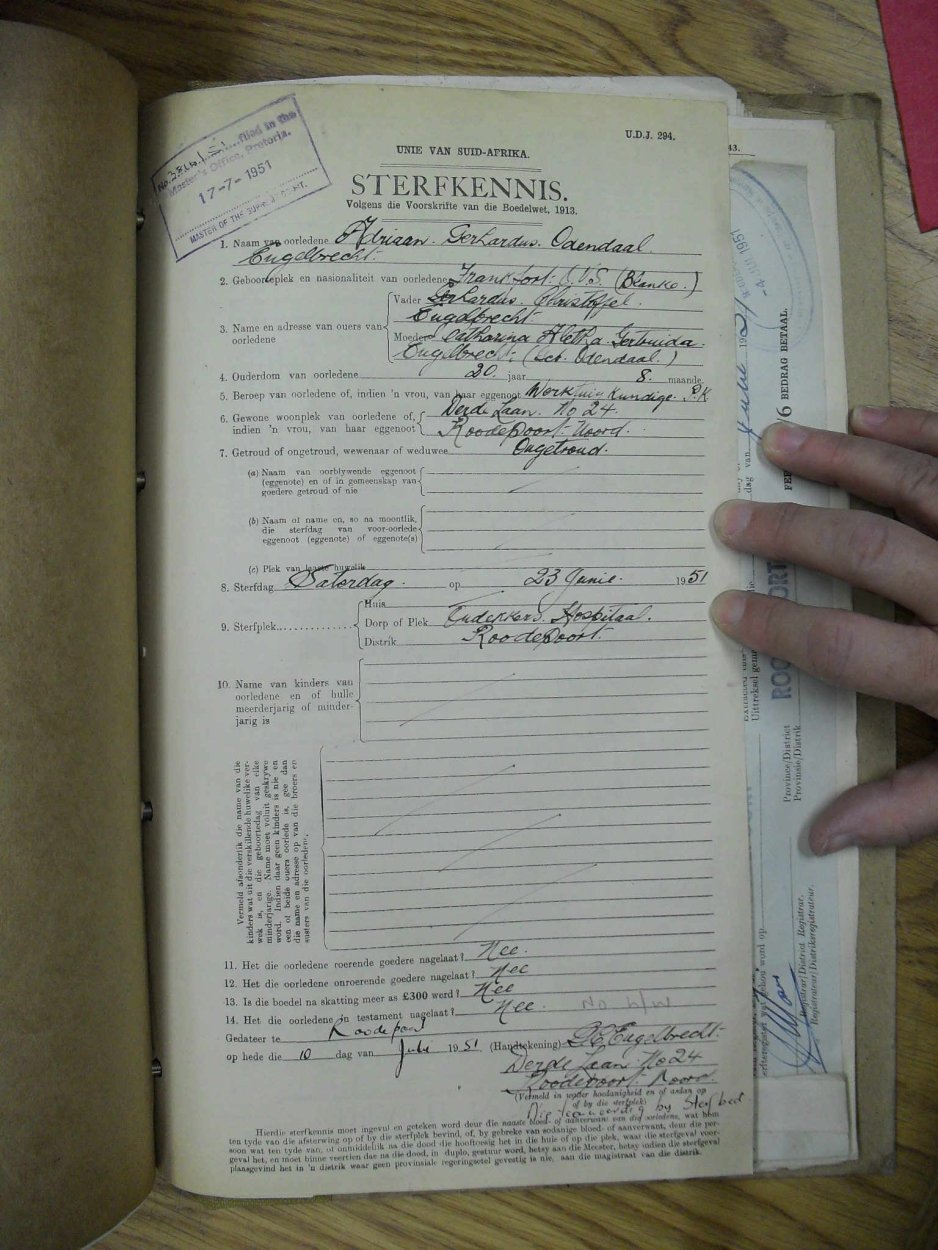 U.D.J. 294.
filed in the
Master's Office, Pretoria.
17-7-1951
MASTER OF THE SUPREME COURT.
UNIE VAN SUID-AFRIKA.
STERFKENNIS.
Volgens die Voorskrifte van die Boedelwet, 1913.
1. Naam van oorledene Adriaan Gerhardus Odendaal
Engelbrecht.
2. Geboorteplek en nasionaliteit van oorledene Frankfort O.V.S. (Blanke.)
3. Name en adresse van ouers van oorledene
Vader Gerhardus Christoffel
Engelbrecht
Moeder Catharina Aletha Gertruida
Engelbrecht (geb. Odendaal.)
4. Ouderdom van oorledene 20 jaar 8 maande.
5. Beroep van oorledene of, indien 'n vrou, van haar eggenoot Werktuigkundige. P.K.
6. Gewone woonplek van oorledene of, indien 'n vrou, van haar eggenoot
Derde Laan No 24
Roodepoort Noord.
7. Getroud of ongetroud, wewenaar of weduwee Ongetroud.
(a) Naam van oorblywende eggenoot
(eggenote) en of in gemeenskap van
goedere getroud of nie
(b) Naam of name en, so na moontlik,
die sterfdag van voor-oorlede
eggenoot (eggenote) of eggenote(s)
(c) Plek van laaste huwelik
8. Sterfdag Saterdag op 23 Junie 1951
9. Sterfplek
Huis
Dorp of Plek Hospitaal.
Distrik Roodepoort.
10. Name van kinders van
oorledene en of hulle
meerderjarig of minder-
jarig is
Vermeld afsonderlik die name van die
kinders wat uit die verskillende huwelike ver-
wek is, en die geboortedag van elke
minderjarige. Name moet voluit geskrywe
word. Indien daar geen kinders is nie en
een of beide ouers oorlede is, gee dan
die name en adresse op van die broers en
susters van die oorledene.
11. Het die oorledene roerende goedere nagelaat? Nee.
12. Het die oorledene onroerende goedere nagelaat? Nee
13. Is die boedel na skatting meer as £300 werd? Nee
14. Het die oorledene 'n testament nagelaat? Nee.
Gedateer te Roodepoort
op hede die 10 dag van Julie 1951 (Handtekening) Engelbrecht
Derde Laan No 24
Roodepoort Noord
(Vermeld in watter hoedanigheid en of aldan op
of by die sterfplek)
by Sterfbed
Hierdie sterfkennis moet ingevul en geteken word deur die naaste bloed- of aanverwant van die oorledene, wat hom
ten tyde van die afsterwing op of by die sterfplek bevind, of, by gebreke van sodanige bloed- of aanverwant, deur die per-
soon wat ten tyde van, of onmiddelik na die dood die hooftoesig het in die huis of op die plek, waar die sterfgeval voor-
geval het, en moet binne veertien dae na die dood, in duplo, gestuur word, hetsy aan die Meester, hetsy indien die sterfgeval
plaasgevind het in 'n distrik waar geen provinsiale regeringsetel gevestig is nie, aan die magistraat van die distrik.
43.
BEDRAG BETAAL.
dag van
Province/District
Provinsie/Distrik
Registrar/District Registrar.
Registrateur/Distriksregistrateur.